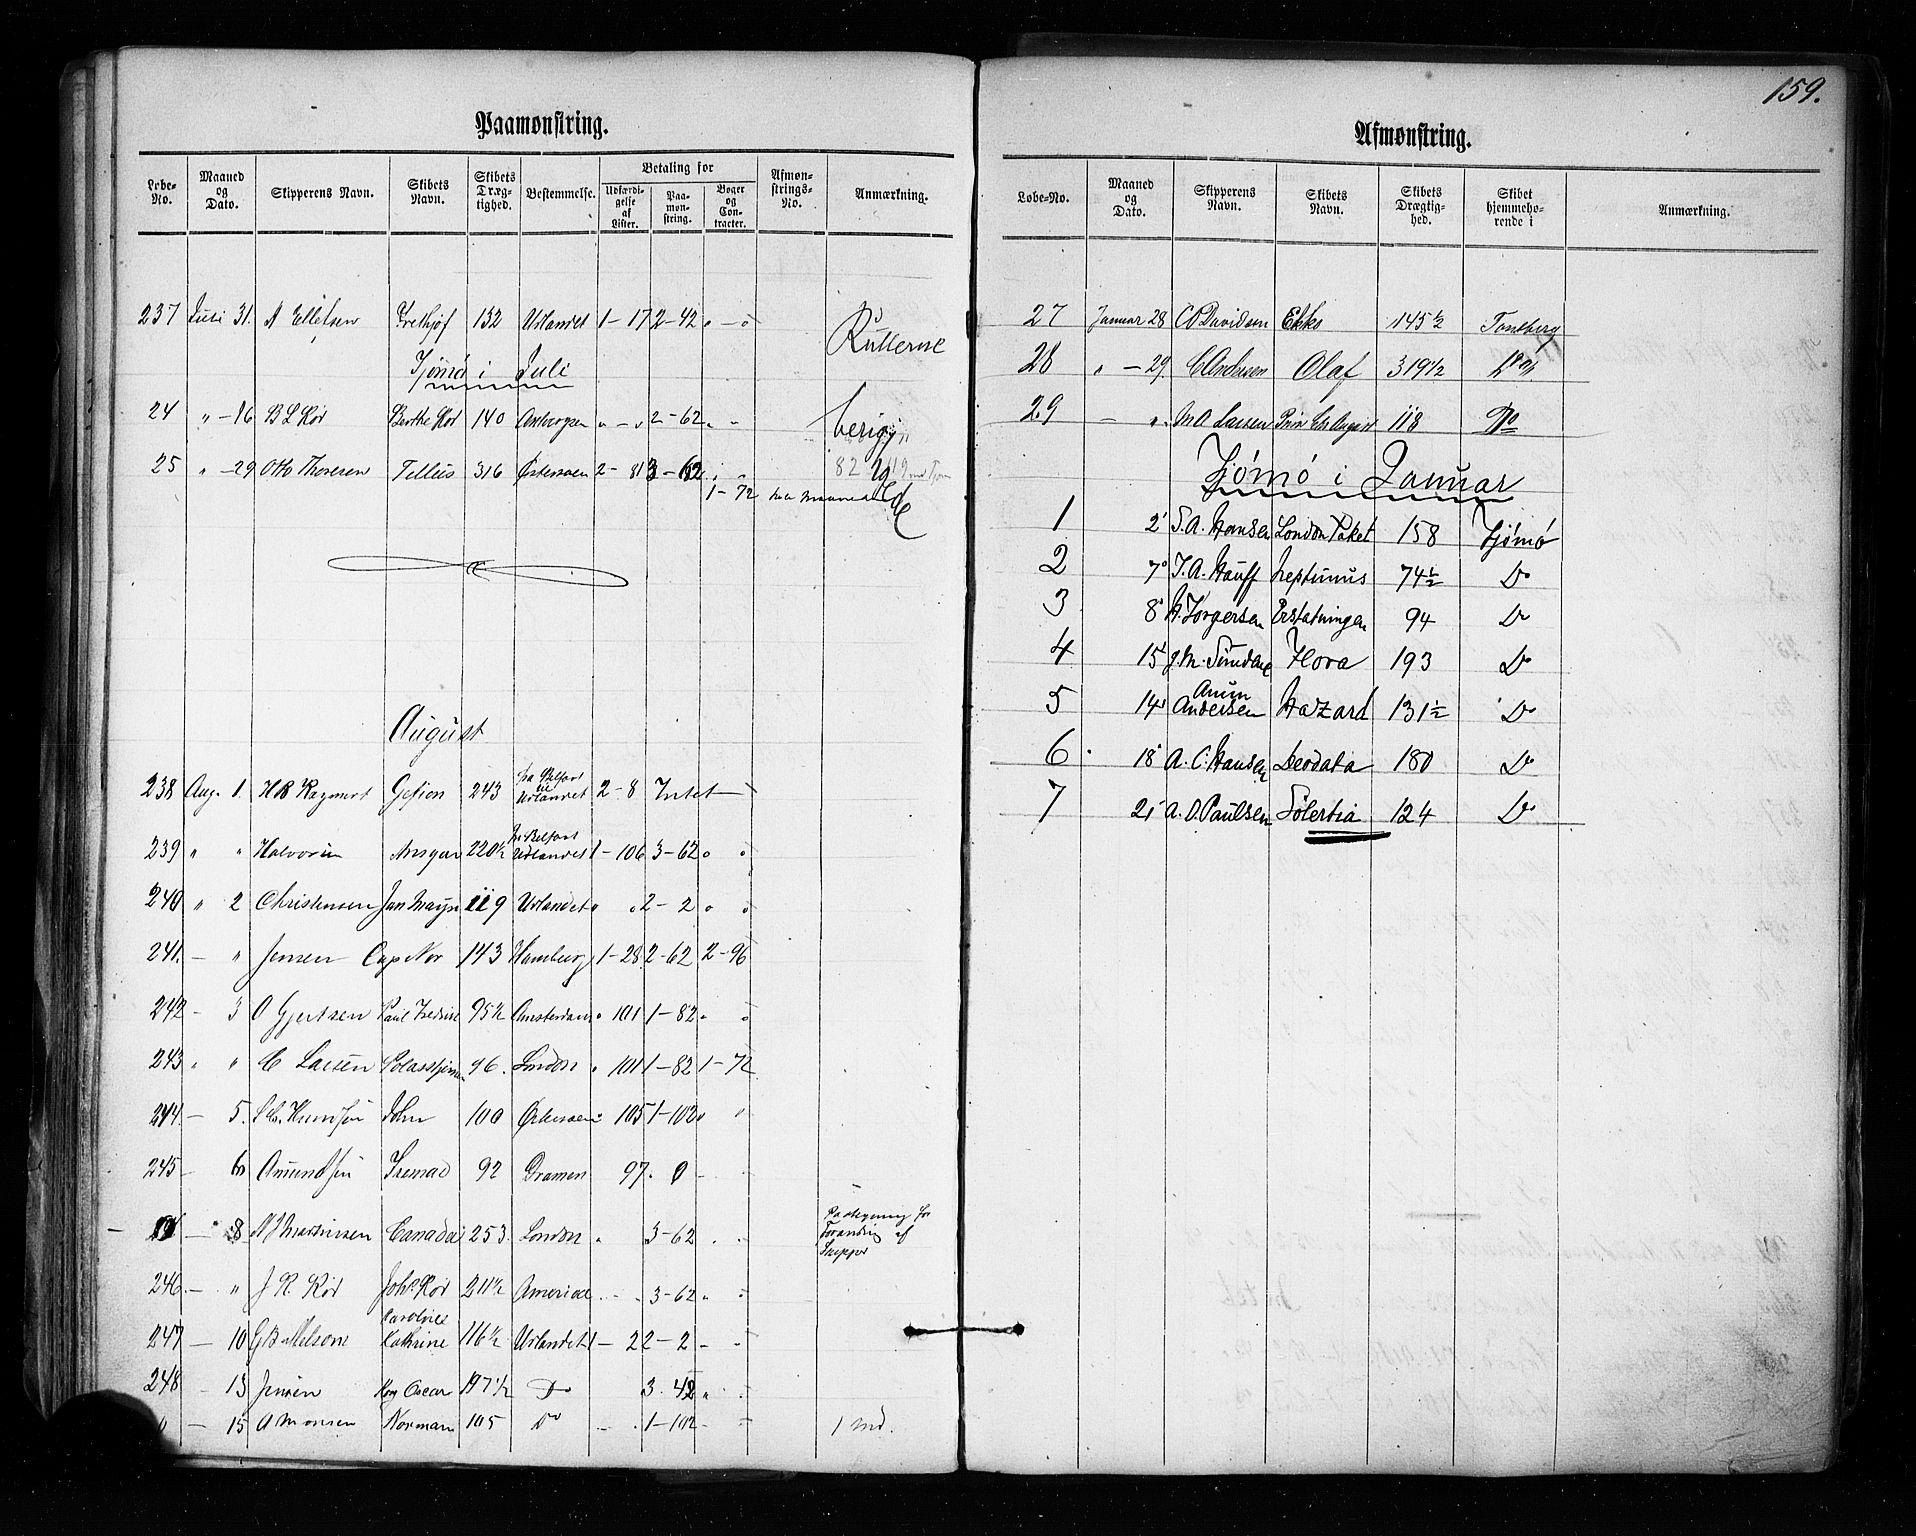 159.
Paamonstring.
Løbe-No. Maaned og Dato. Skipperens Navn. Skibets Navn. Skibets Dræg-tighed. Bestemmelse. Betaling for Udfærdi-gelse af Lister. Paa-mon-string. Bøger og Con-tracter. Afmøn-strings-No. Anmærkning.
237 Juli 31. A Ellefsen 132 Udlandet 1-17 2-42
Tjømø i Juli
24 " -16 B L Kör Berthe Kör 140 2-62
25 " -29 Otto Thoresen Tellus 316 Østersøen 2-81 3-62
1-72
August
238 Aug. 1. Gefion 243 fra Belfort til Udlandet 2-8 Intet
239 " " Halvorsen Ansgar 220½ fr Belfort Udlandet 1-106 3-62
240 " 2 Christensen Jan Mayn 119 Udlandet " 2-2
241. - " Jensen Cap Nor 143 Hamburg 1-28 2-62 2-96
242 - 3 O Gjertsen 95½ Amsterdam " 101 1-82
243 " " C Larsen 96. London " 101 1-82 1-72
244 - 5. John 100 Østersøen 105 1-102
245 - 6 Amundsen 92 Dramen 97. 0
8 Martinsen Canada 253. London " 3-62 Paategning for Forandring af Skipper
246. - " J R. Kör Joh. Kör 211½ Amerika 3-62
247 - 10 G B Nelson Caroline Kathrine 116½ Udlandet 1-2 2-2
248 - 13 Jensen Kong Oscar 197½ Do 3. 42
- 15 A Monsen Norman 105 Do 1-102 1 Md.
Afmonstring.
Løbe-No. Maaned og Dato. Skipperens Navn. Skibets Navn. Skibets Drægtig-hed. Skibet hjemmehø-rende i Anmærkning.
27 Januar 28 C Davidsen Ekko 145½ Tønsberg
28 " -29. C Andersen Olaf 319½ Do
29 - " M A Larsen 118 Do
Tjømø i Januar
1 2 S. A. Hansen London Paket 158 Tjømø
2 7 J. A. Hauff Neptunus 74½ Do
3 8 H. Torgersen Erstatningen 94 Do
4 15 Flora 193 Do
5 14 Anun Andersen Hazard 131½ Do
6 18 A. C. Hansen Deodata 180 Do
7 21 A. O. Paulsen Solertia 124 Do